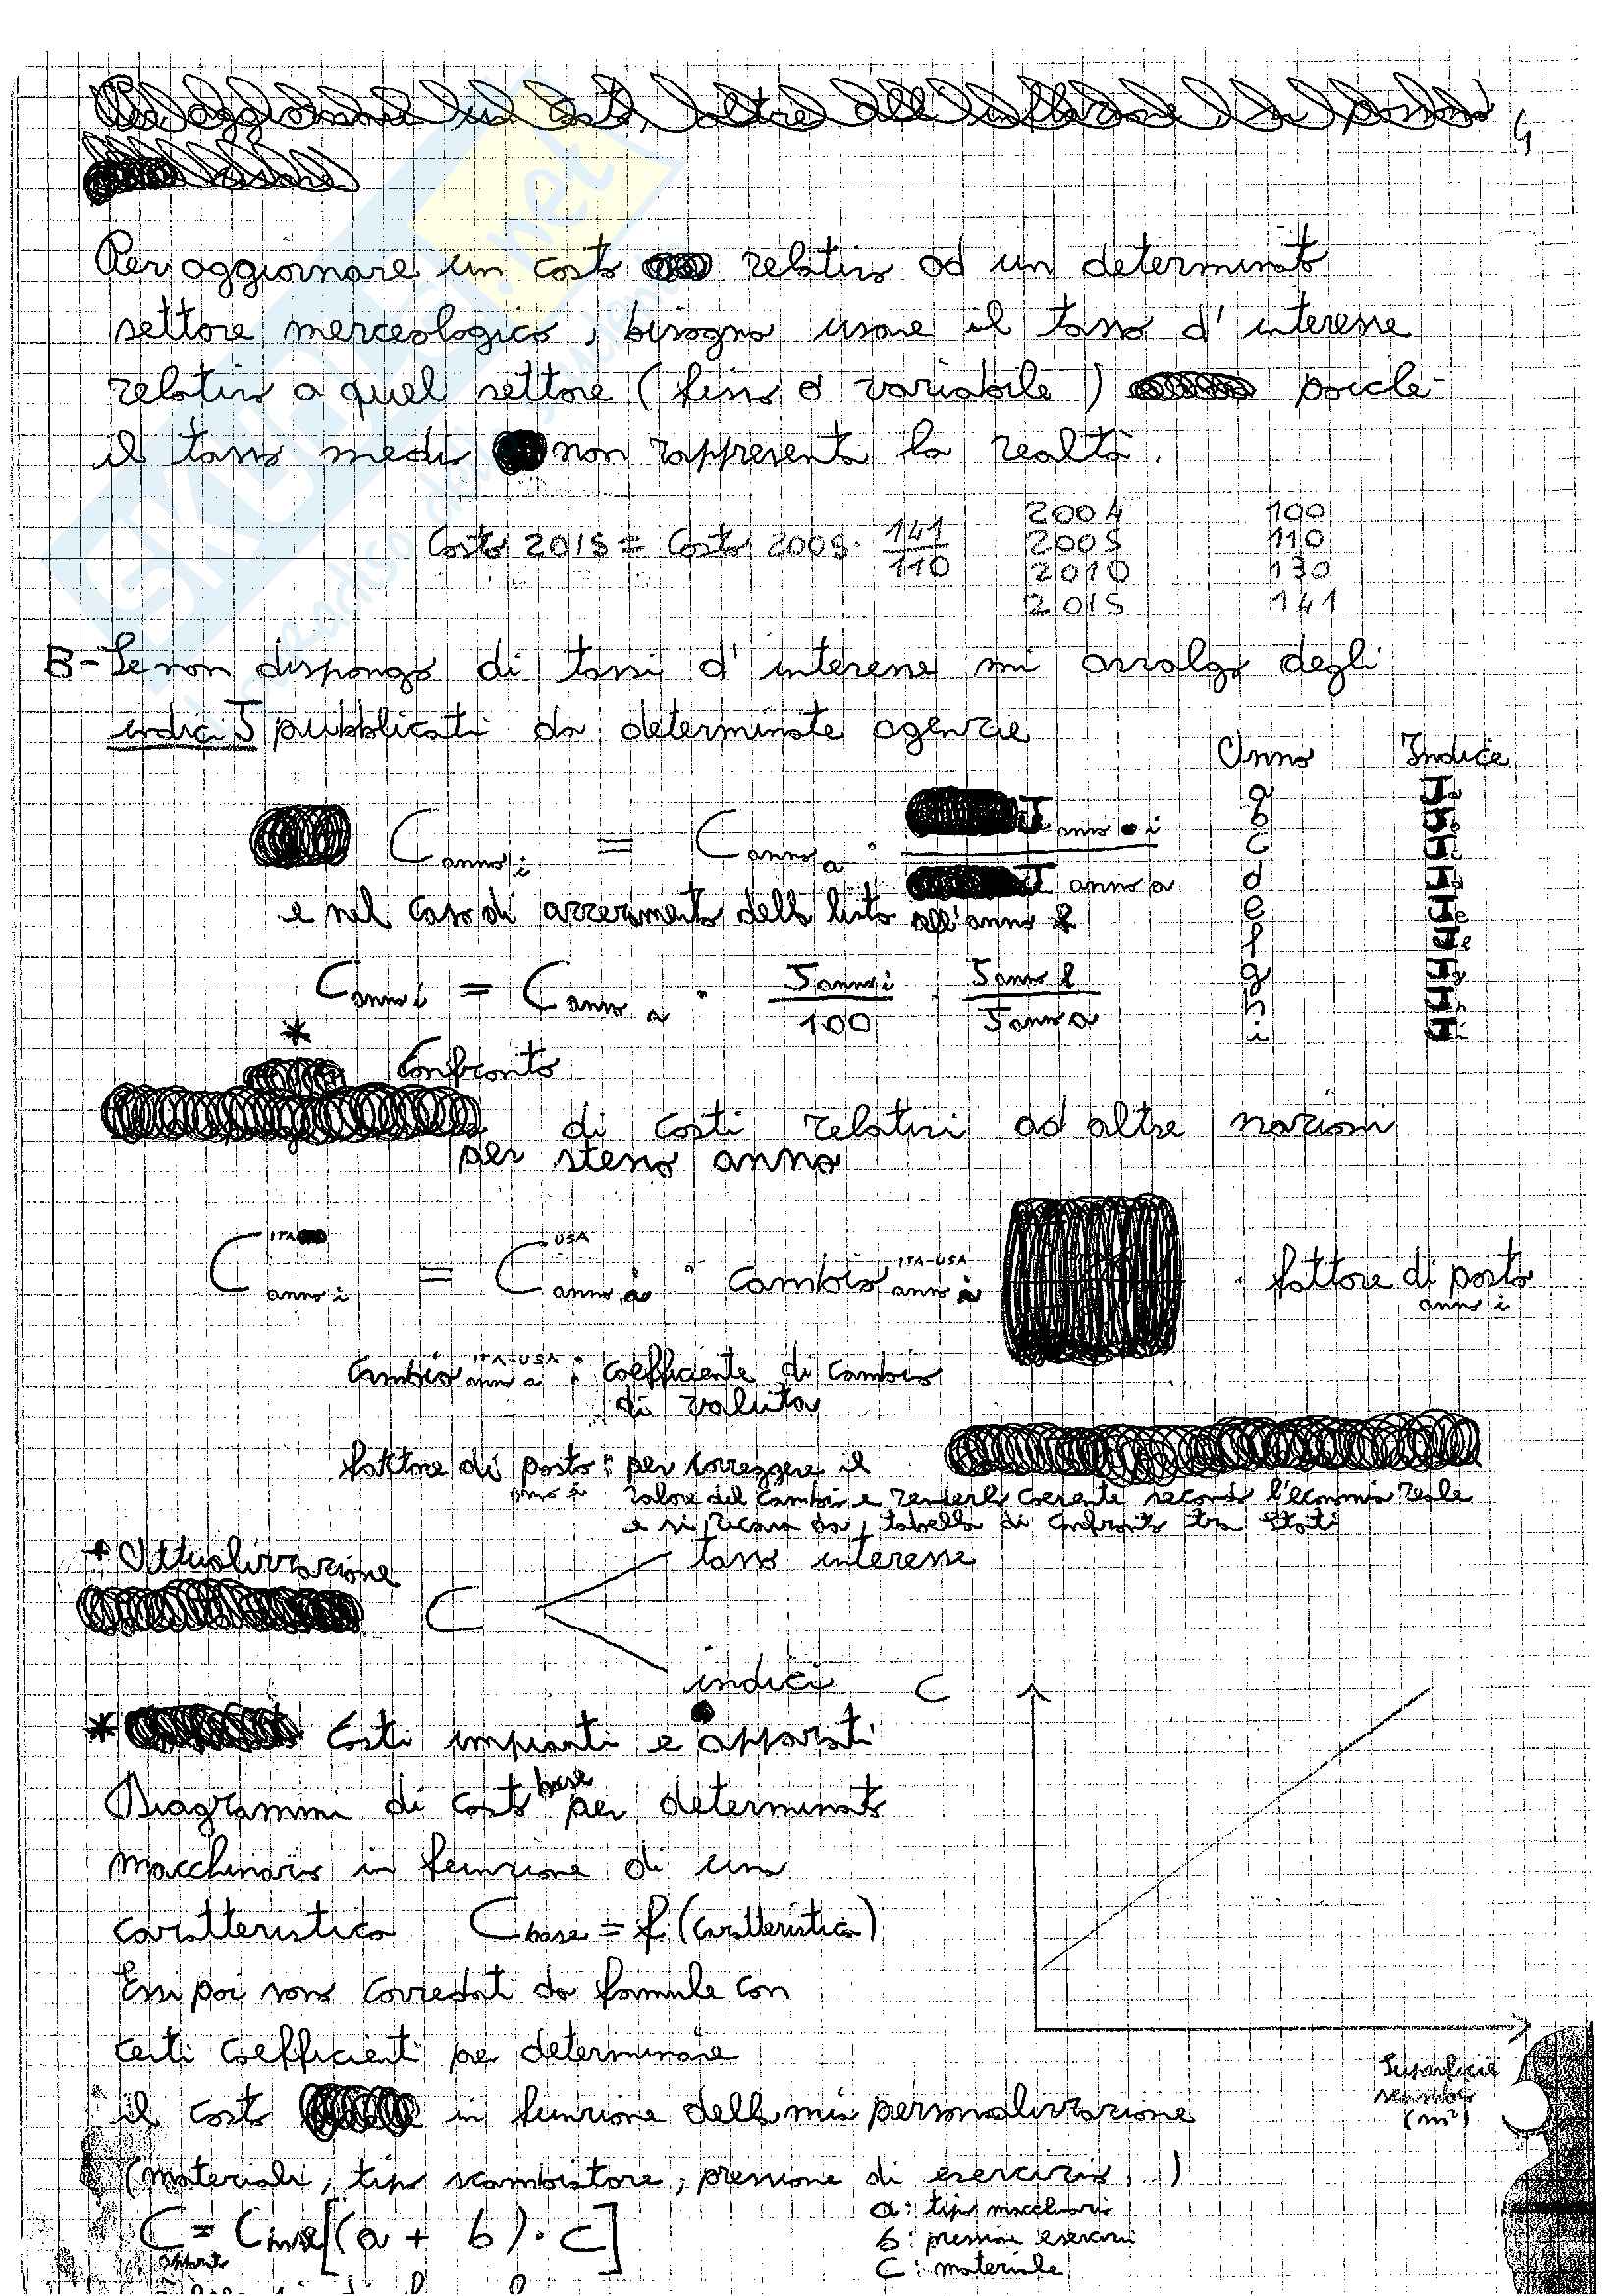 Per aggiornare un costo, oltre all'inflazione, si possono
4
usare
Per aggiornare un costo relativo ad un determinato
settore merceologico, bisogna usare il tasso d'interesse
relativo a quel settore (fisso o variabile) poiche
il tasso medio non rappresenta la realtà.
Costo 2015 = Costo 2005 · 141/110
2004 100
2005 110
2010 130
2015 141
B- Se non dispongo di tassi d'interesse mi avvalgo degli
indici J pubblicati da determinate agenzie
Anno Indice
a
b
c
d
e
f
g
h
i
C anno i = C anno a · J anno i / J anno a
e nel caso di azzeramento della lista all'anno f
C anno i = C anno a · J anno i / 100 · J anno f / J anno a
* Confronto
di costi relativi ad altre nazioni
per stesso anno
C ITA anno i = C USA anno i · Cambio ITA-USA anno i · fattore di posto anno i
Cambio ITA-USA anno a : coefficiente di cambio
di valuta
fattore di posto : per correggere il
valore del cambio e renderlo coerente secondo l'economia reale
e si ricava da tabella di confronto tra stati
+ Attualizzazione
tasso interesse
C
indici
C
* Costi impianti e apparati
Diagrammi di costo base per determinato
macchinario in funzione di una
caratteristica C base = f (caratteristica)
Essi poi sono corredati da formule con
certi coefficienti per determinare
Superficie
scambio
(m²)
il costo in funzione della mia personalizzazione
(materiali, tipo scambiatore, pressione di esercizio, )
C apparato = C base [(a + b) · c]
a: tipo macchinario
b: pressione esercizio
c: materiale